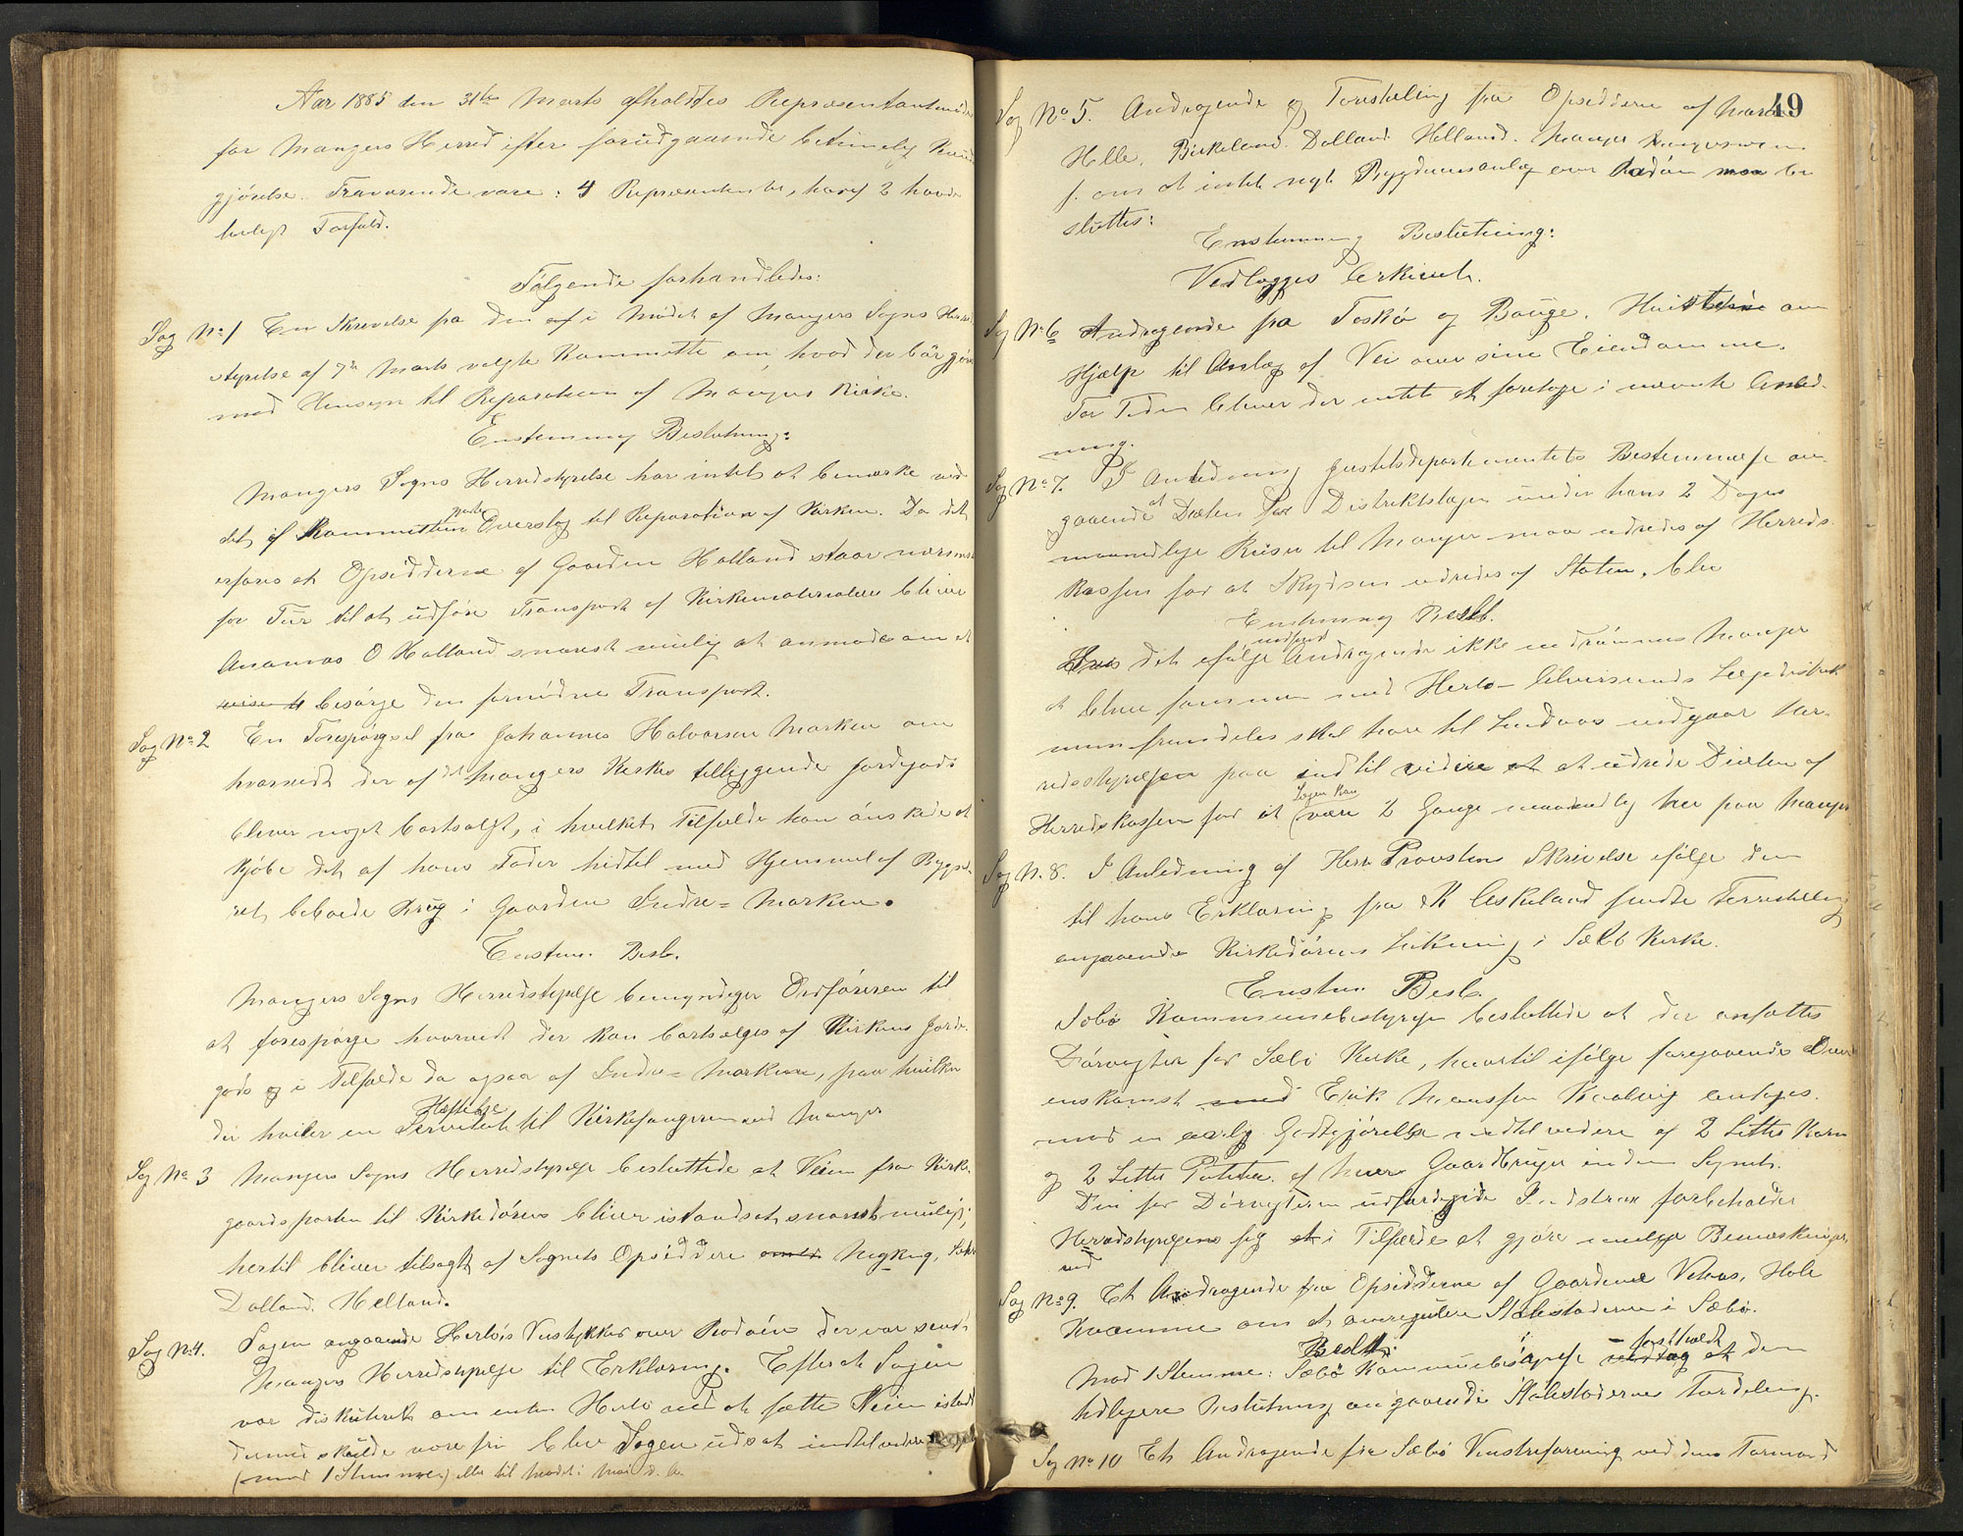 Aar 1885 den 31te Marts afholdtes Repræsentantmöde
for Mangers Herred efter forudgaaende betimelig Kund
gjörelse. Fraværende vare: 4 Repræsentanter, hvoraf 2 havde
lovligt Forfald.
Følgende forhandledes:
Sag No 1 En Skrivelse fra den af i Mödet af Mangers Sogns Herreds
styrelse af 7de Marts valgte Kommitte om, hvad der bör gjöres
med Hensyn til Reparation af Mangers Kirke.
Enstemmig Beslutning:
Mangers Sogns Herredstyrelse har intet at bemærke ved
det af Kommitteen gjorte Overslag til Reparation af Kirken. Da det
erfares at Opsidderne af Gaarden Halland staar nærmest
for Tur til at udföre Transport af Kirkematerialer bliver
Ananias O Halland snarest mulig at anmode om at
besörge den fornödne Transport.
Sag No 2 En Forespörgsel fra Johannes Halvorsen Marken om
hvorvidt der af det Mangers Kirke tilliggende Jordegods
bliver noget bortsolgt, i hvilket Tilfælde han önskede at
kjöbe det af hans Fader hidtil med Hjemmel af Bygsel-
ret beboede Brug i Gaarden Indre-Marken.
Enstem. Besl.
Mangers Sogns Herredstyrelse bemyndiger Ordföreren til
at forespörge hvorvidt der kan bortsælges af Kirkens Jorde-
gods og i Tilfælde da ogsaa af Indre-Marken, paa hvilken
der hviler en Servitut Heftelse til Kirkesangeren ved Manger
Sag No 3 Mangers Sogns Herredstyrelse besluttede at Veien fra Kirke-
gaardsporten til Kirkedören bliver istandsat snarest muligt;
hertil bliver tilsagt af Sognets Opsiddere Nyking,
Dalland. Helland.
Sag No 4. Sagen angaaende Herlös Veistykker over Radöen der var sendt
Mangers Herredstyrelse til Erklæring. Efterat Sagen
var diskuteret om enten Herlö ved at sætte Veien istand
dermed skulde være fri blev Sagen udsat indtil videre
(mod 1 Stemme) eller til Mödet i Mai d. A.
49
Sag No 5. Andragende og Forestilling fra Opsidderne af
Helle, Birkeland. Dalland. Helland. Manger
f. om at intet nyt Rygdeveisanlæg over Radöen maa be
sluttes:
Enstemmig Beslutning:
Vedlægges Cirkulet.
Sag No 6 Andragende fra Toskö og Bauge, om
Hjælp til Anlæg af Vei over sine Eiendomme.
For Tiden bliver der intet at foretage i nævnte Anled-
ning.
Sag No 7. I Anledning Justitsdepartementets Bestemmelse an
gaaende at Diæten for Distriktslægen under hans 2 Dages
maanedlige Reiser til Manger maa udredes af Herreds-
kassen for at Skydsen udredes af Staten, blev
Enstemmig Beslt.
Hvis det ifölge Andragende ikke indrömmes Manger
at blive sammen med Herlö- Alversunds Lægedistrikt
men fremdeles skal höre til Lindaas indgaar Her-
redsstyrelsen paa indtil videre at udrede Diæten af
Herredskassen for at Lægen kan være 2 Gange maanedlig her paa Manger
Sag N. 8. I Anledning af Herr Provstens Skrivelse ifölge den
til hans Erklæring fra K Askeland sendte Forestilling
angaaende Kirkedörens Lukning i Sæbö Kirke.
Enstem Besl.
Sæbö Kommunebestyrelse besluttede at der ansættes
Dörvogter for Sæbö Kirke, hvortil ifölge foregaaende Over
enskomst Erik Monssen Kvalvig antages
mod en aarlig Godtgjörelse indtil videre af 2 Litter Korn
og 2 Litter Poteter af hver Gaardbruger inden Sognet.
Den for Dörvogteren udfærdigede Instrux forbeholder
Herredstyrelsen sig i Tilfælde at gjöre mulige Bemærkninger
ved
Sag No 9. Et Andragende fra Opsidderne af Gaardene Vetaas, Hole
Kvamme om at overregulere Skolestederne i Sæbö.
Beslt.
Mod 1 Stemme: Sæbö Kommunebestyrelse fastholdt den
tidligere Beslutning angaaende Skolestedernes Fordeling.
Sag No 10 Et Andragende fra Sæbö Venstreforening ved dens Formand